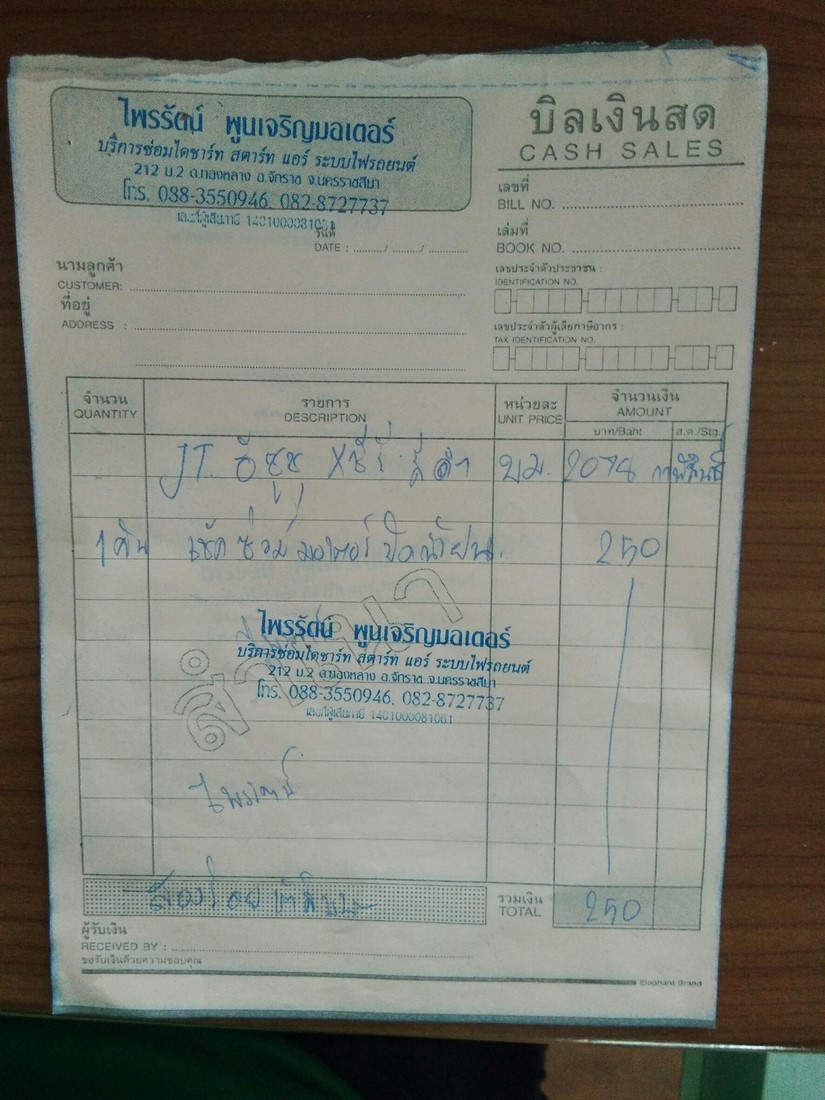 ไพรรัตน์ พูนเจริญมอเตอร์
บริการซ่อมไดชาร์ท สตาร์ท แอร์ ระบบไฟรถยนต์
212 ม.2 ต.ทองหลาง อ.จักราช จ.นครราชสีมา
โทร. 088-3550946, 082-8727737
เลขที่ผู้เสียภาษี 1401000081061
บิลเงินสด
CASH SALES
เลขที่
BILL NO.
เล่มที่
BOOK NO.
วันที่
DATE : ......../......../........
นามลูกค้า
CUSTOMER:
ที่อยู่
ADDRESS :
เลขประจำตัวประชาชน :
IDENTIFICATION NO.
เลขประจำตัวผู้เสียภาษีอากร :
TAX IDENTIFICATION NO.
จำนวน รายการ หน่วยละ จำนวนเงิน
QUANTITY DESCRIPTION UNIT PRICE AMOUNT
บาท/Baht ส.ต./Stg.
JT. อีซูซุ สีดำ บม. 2078 กาฬสินธุ์
1 คัน เช็คซ่อมมอเตอร์ปัดน้ำฝน. 250
สำเนา
ไพรรัตน์ พูนเจริญมอเตอร์
บริการซ่อมไดชาร์ท สตาร์ท แอร์ ระบบไฟรถยนต์
212 ม.2 ต.ทองหลาง อ.จักราช จ.นครราชสีมา
โทร. 088-3550946, 082-8727737
เลขที่ผู้เสียภาษี 1401000081061
ไพรรัตน์
สองร้อยห้าสิบบาท
รวมเงิน
TOTAL 250
ผู้รับเงิน
RECEIVED BY :
ขอรับเงินด้วยความขอบคุณ
Elephant Brand